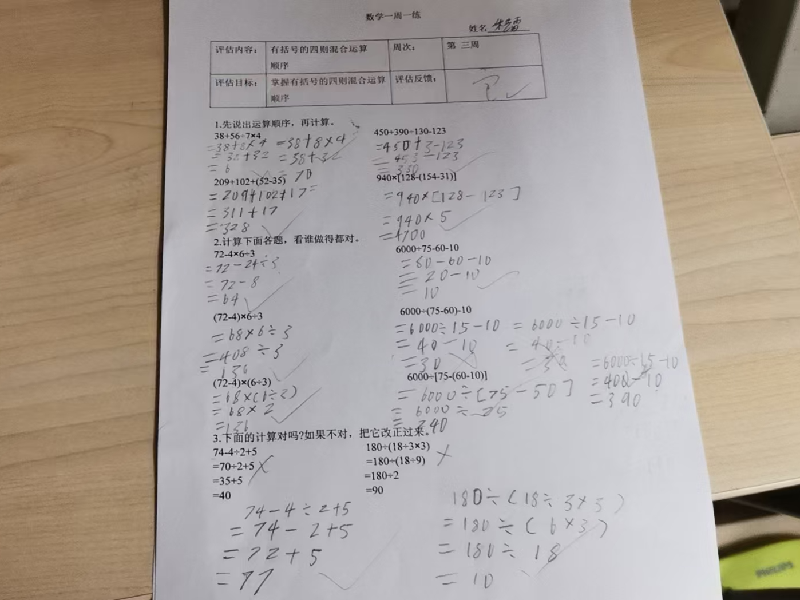 数学一周一练
姓名
评估内容： 有括号的四则混合运算顺序 周次： 第 三周
评估目标： 掌握有括号的四则混合运算顺序 评估反馈：
1.先说出运算顺序，再计算。
38+56÷7×4 450+390÷130-123
=38+8×4 =450+3-123
=38+32 =453-123
=70 =330
209+102+(52-35) 940×[128-(154-31)]
=209+102+17 =940×[128-123]
=311+17 =940×5
=328 =4700
2.计算下面各题，看谁做得都对。
72-4×6÷3 6000÷75-60-10
=72-24÷3 =80-60-10
=72-8 =20-10
=64 =10
(72-4)×6÷3 6000÷(75-60)-10
=68×6÷3 =6000÷15-10 =6000÷15-10
=408÷3 =40-10 =40-10
=136 =30 =30 =6000÷15-10
=400-10
=390
(72-4)×(6÷3) 6000÷[75-(60-10)]
=68×(6÷3) =6000÷[75-50]
=68×2 =6000÷25
=136 =240
3.下面的计算对吗?如果不对，把它改正过来。
74-4÷2+5 180÷(18÷3×3)
=70÷2+5 =180÷(18÷9)
=35+5 =180÷2
=40 =90
74-4÷2+5 180÷(18÷3×3)
=74-2+5 =180÷(6×3)
=72+5 =180÷18
=77 =10
PHILIPS